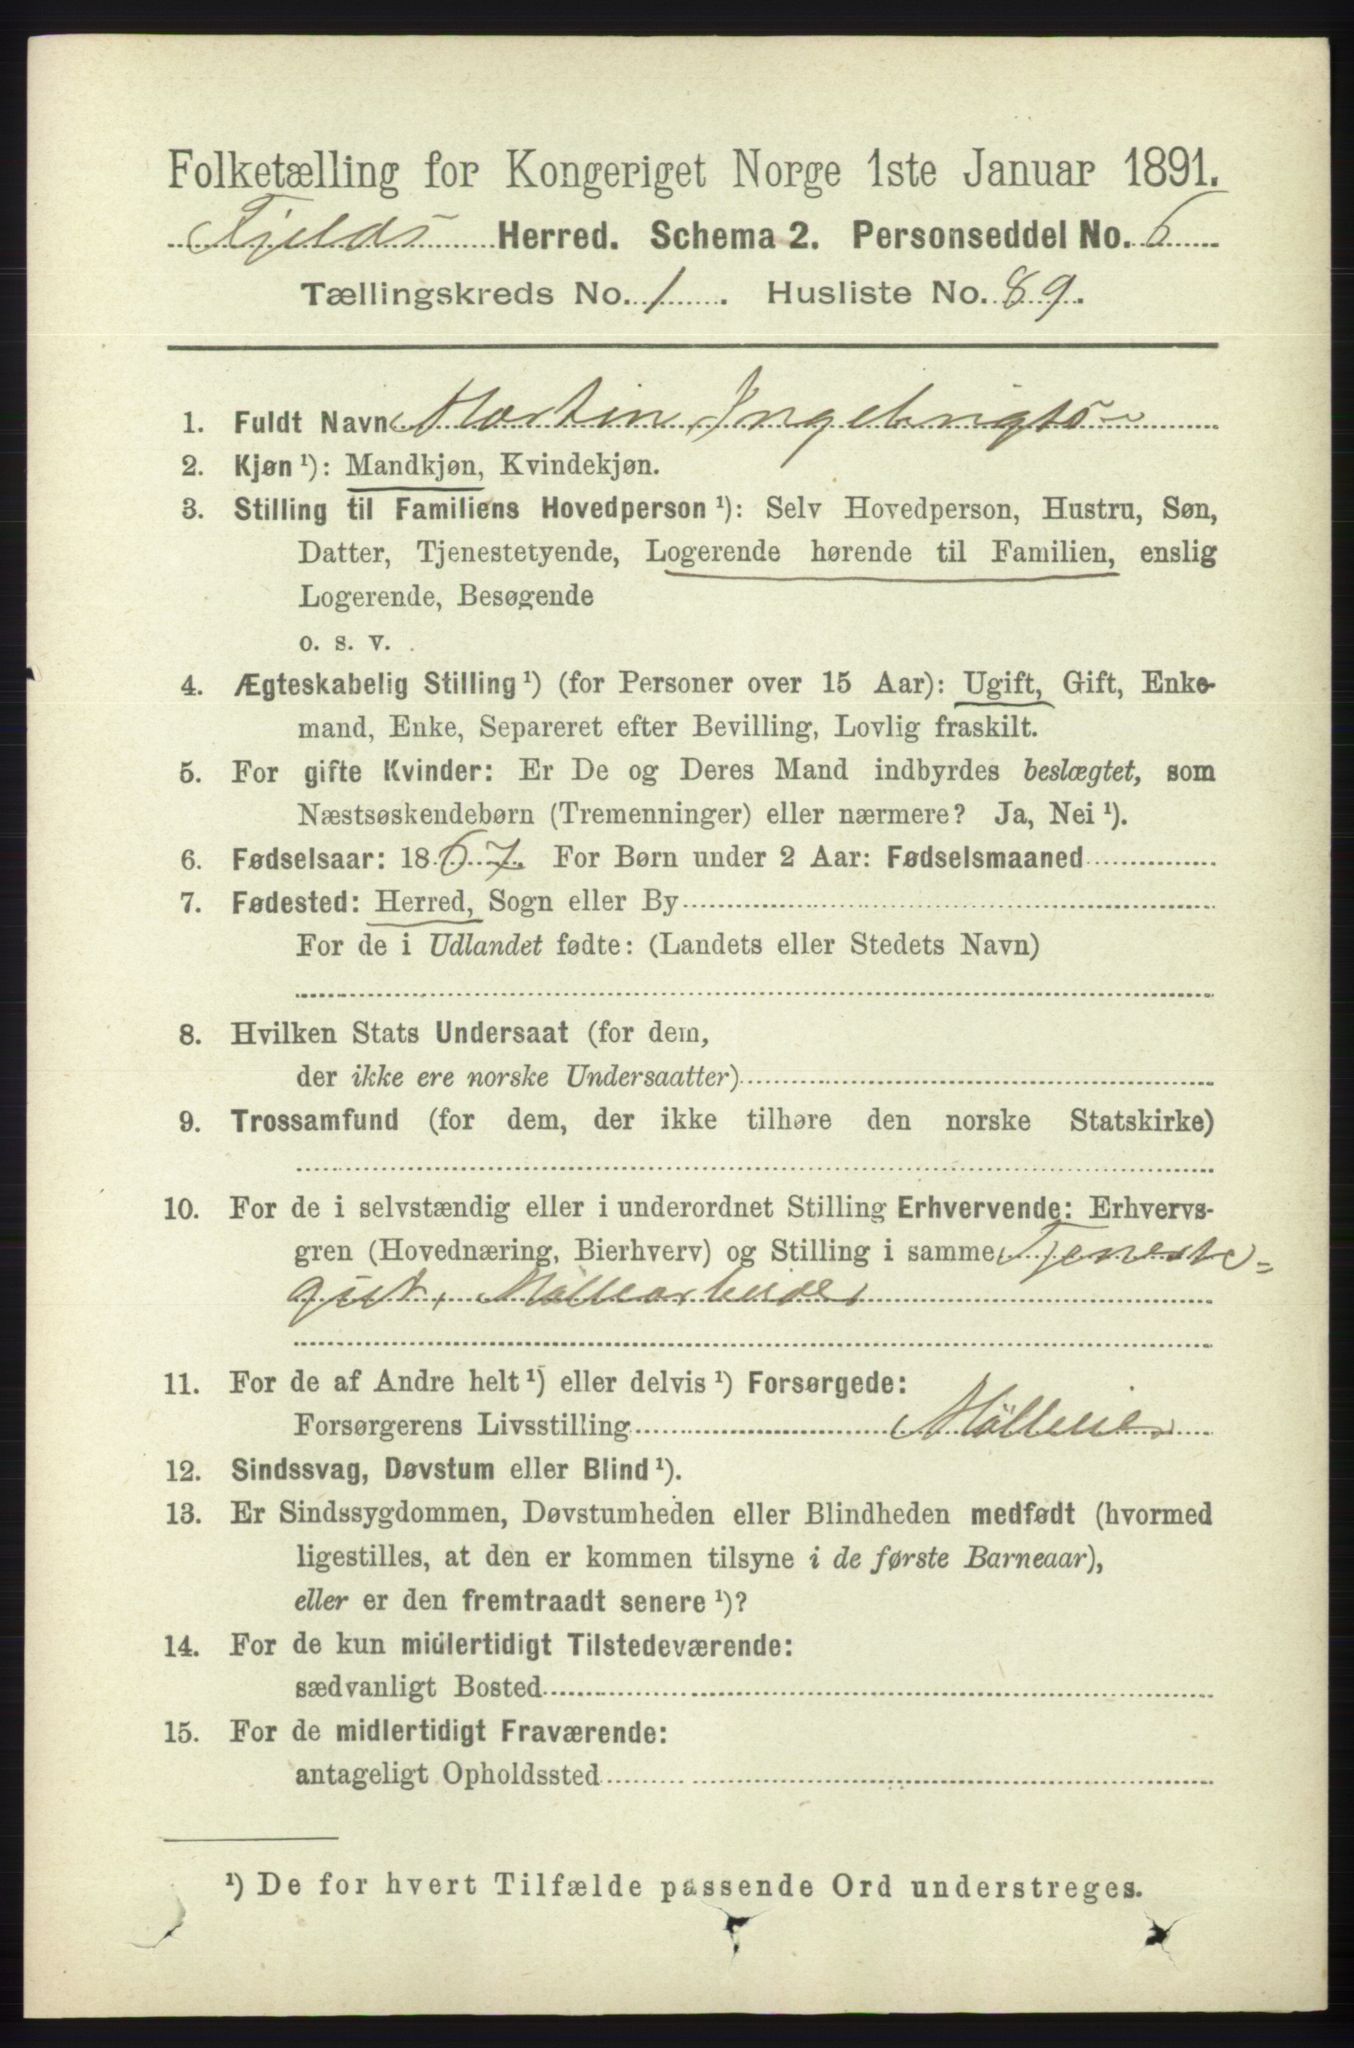 Folketælling for Kongeriget Norge 1ste Januar 1891.
Fjelds Herred. Schema 2. Personseddel No. 6
Tællingskreds No. 1. Husliste No. 89.
1. Fuldt Navn Martin Ingebrigts
2. Kjøn ¹): Mandkjøn, Kvindekjøn.
3. Stilling til Familiens Hovedperson ¹): Selv Hovedperson, Hustru, Søn,
Datter, Tjenestetyende, Logerende hørende til Familien, enslig
Logerende, Besøgende
o. s. v.
4. Ægteskabelig Stilling ¹) (for Personer over 15 Aar): Ugift, Gift, Enke-
mand, Enke, Separeret efter Bevilling, Lovlig fraskilt.
5. For gifte Kvinder: Er De og Deres Mand indbyrdes beslægtet, som
Næstsøskendebørn (Tremenninger) eller nærmere? Ja, Nei ¹).
6. Fødselsaar: 1867. For Børn under 2 Aar: Fødselsmaaned
7. Fødested: Herred, Sogn eller By
For de i Udlandet fødte: (Landets eller Stedets Navn)
8. Hvilken Stats Undersaat (for dem,
der ikke ere norske Undersaatter)
9. Trossamfund (for dem, der ikke tilhøre den norske Statskirke)
10. For de i selvstændig eller i underordnet Stilling Erhvervende: Erhvervs-
gren (Hovednæring, Bierhverv) og Stilling i samme Tjeneste=
gut, Møllearbeider
11. For de af Andre helt ¹) eller delvis ¹) Forsørgede:
Forsørgerens Livsstilling Mølleeier
12. Sindssvag, Døvstum eller Blind ¹).
13. Er Sindssygdommen, Døvstumheden eller Blindheden medfødt (hvormed
ligestilles, at den er kommen tilsyne i de første Barneaar),
eller er den fremtraadt senere ¹)?
14. For de kun midlertidigt Tilstedeværende:
sædvanligt Bosted
15. For de midlertidigt Fraværende:
antageligt Opholdssted
¹) De for hvert Tilfælde passende Ord understreges.